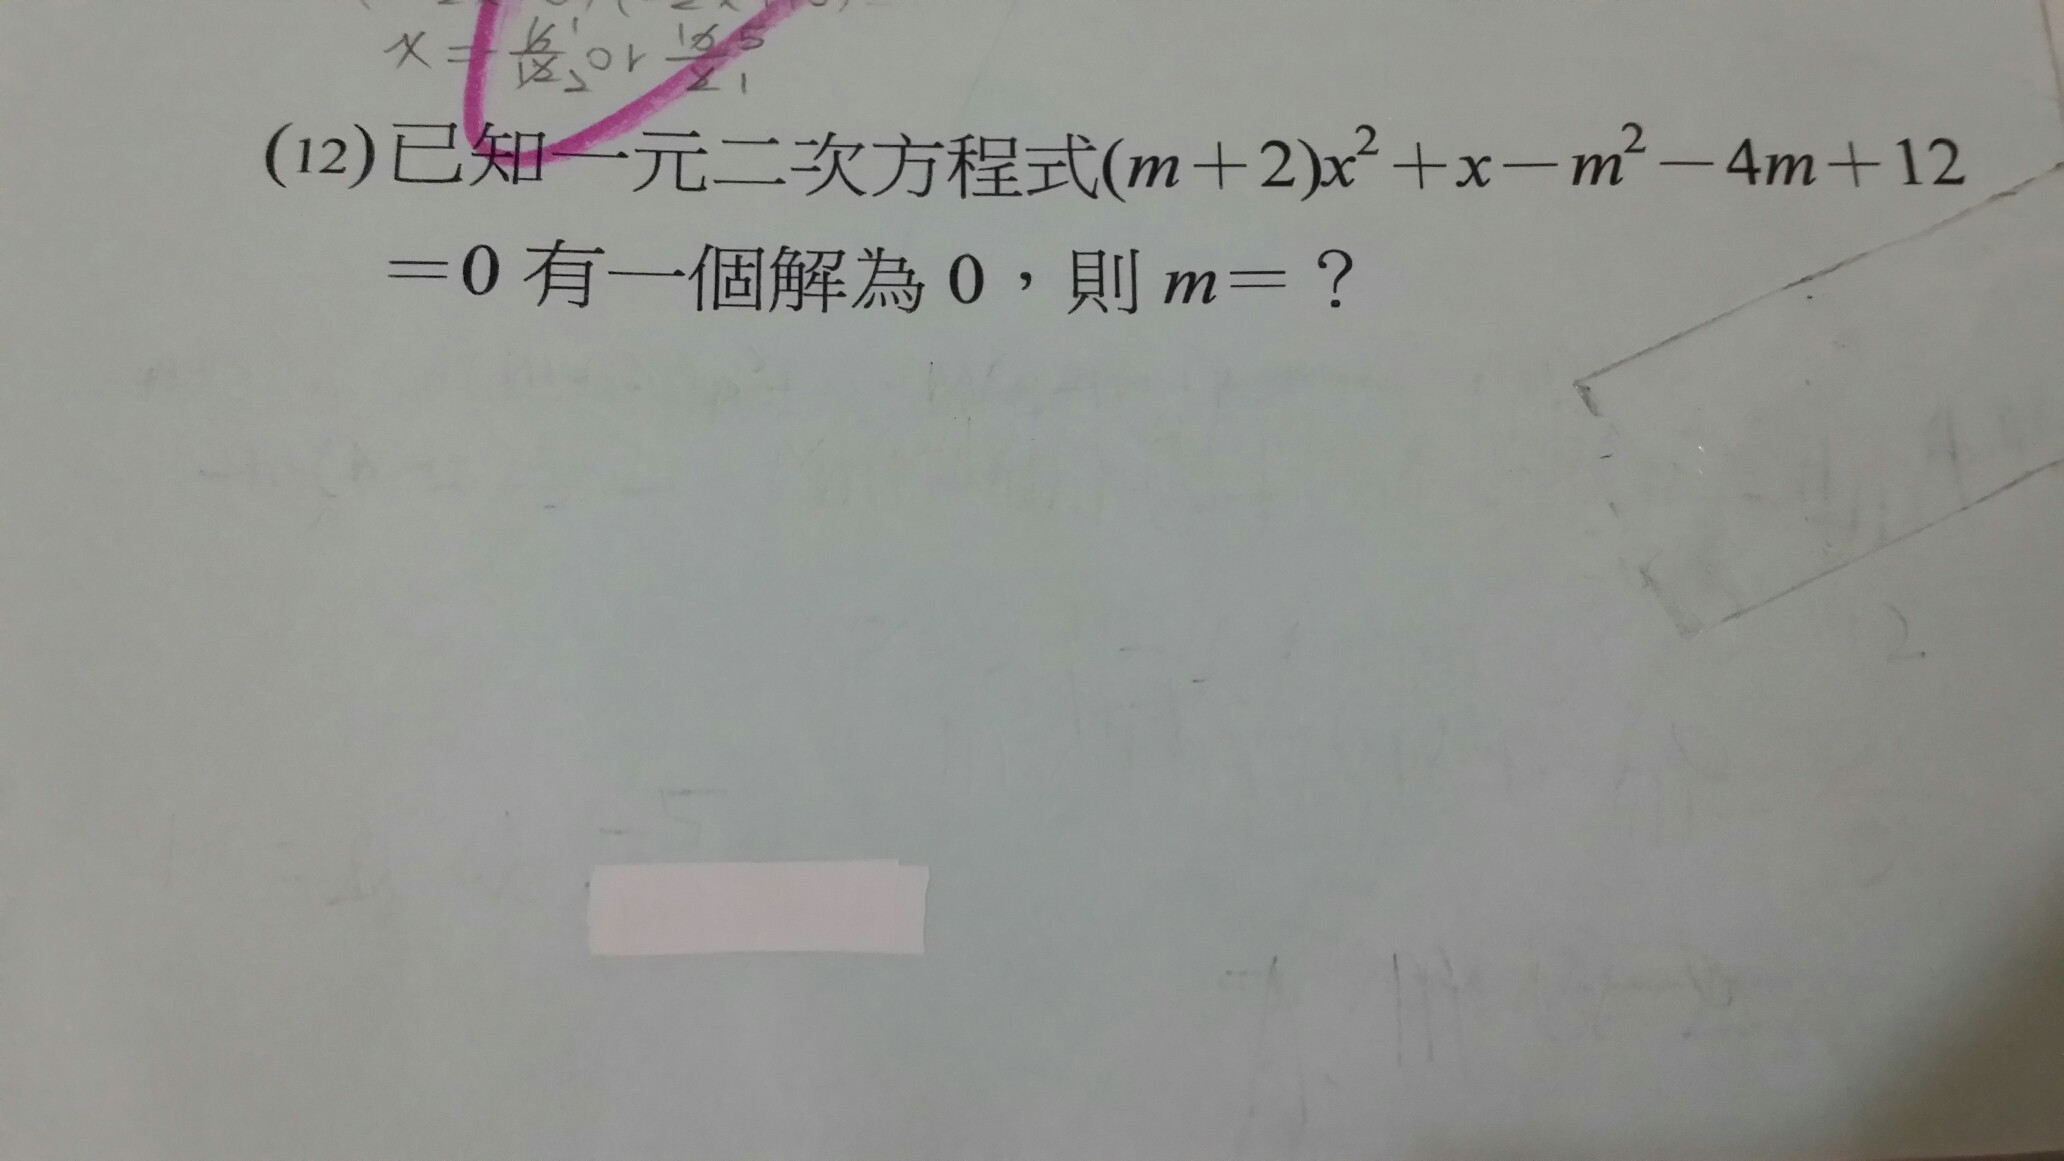 x = 6/12 1/2 or 10/2 5/1
(12)已知一元二次方程式(m＋2)x²＋x－m²－4m＋12
＝0 有一個解為 0，則 m＝？